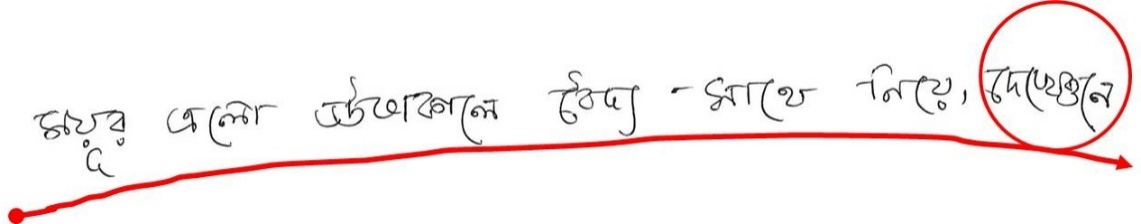 ময়ূর এলো উষ্ণকালে বৈদ্য - সাথে নিয়ে, দেখেশুনে